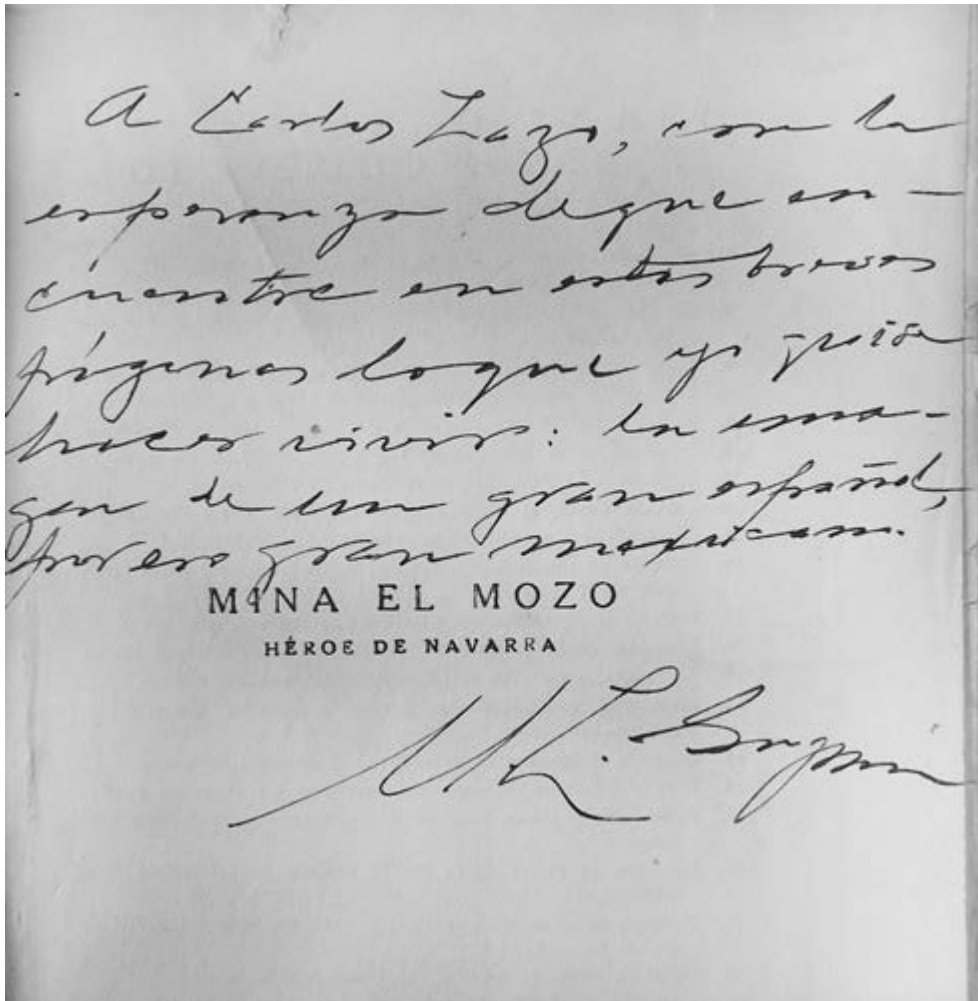 A Carlos Lazo, con la
esperanza de que en-
cuentre en estas breves
páginas lo que yo quise
hacer vivir: la ima-
gen de un gran español,
pero gran mexicano.
MINA EL MOZO
HÉROE DE NAVARRA
M. L. Guzmán